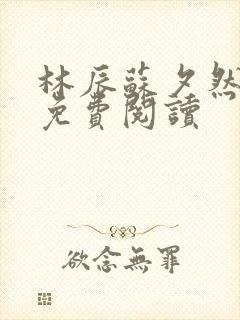 林辰蘇夕然
免費閱讀
欲念無罪